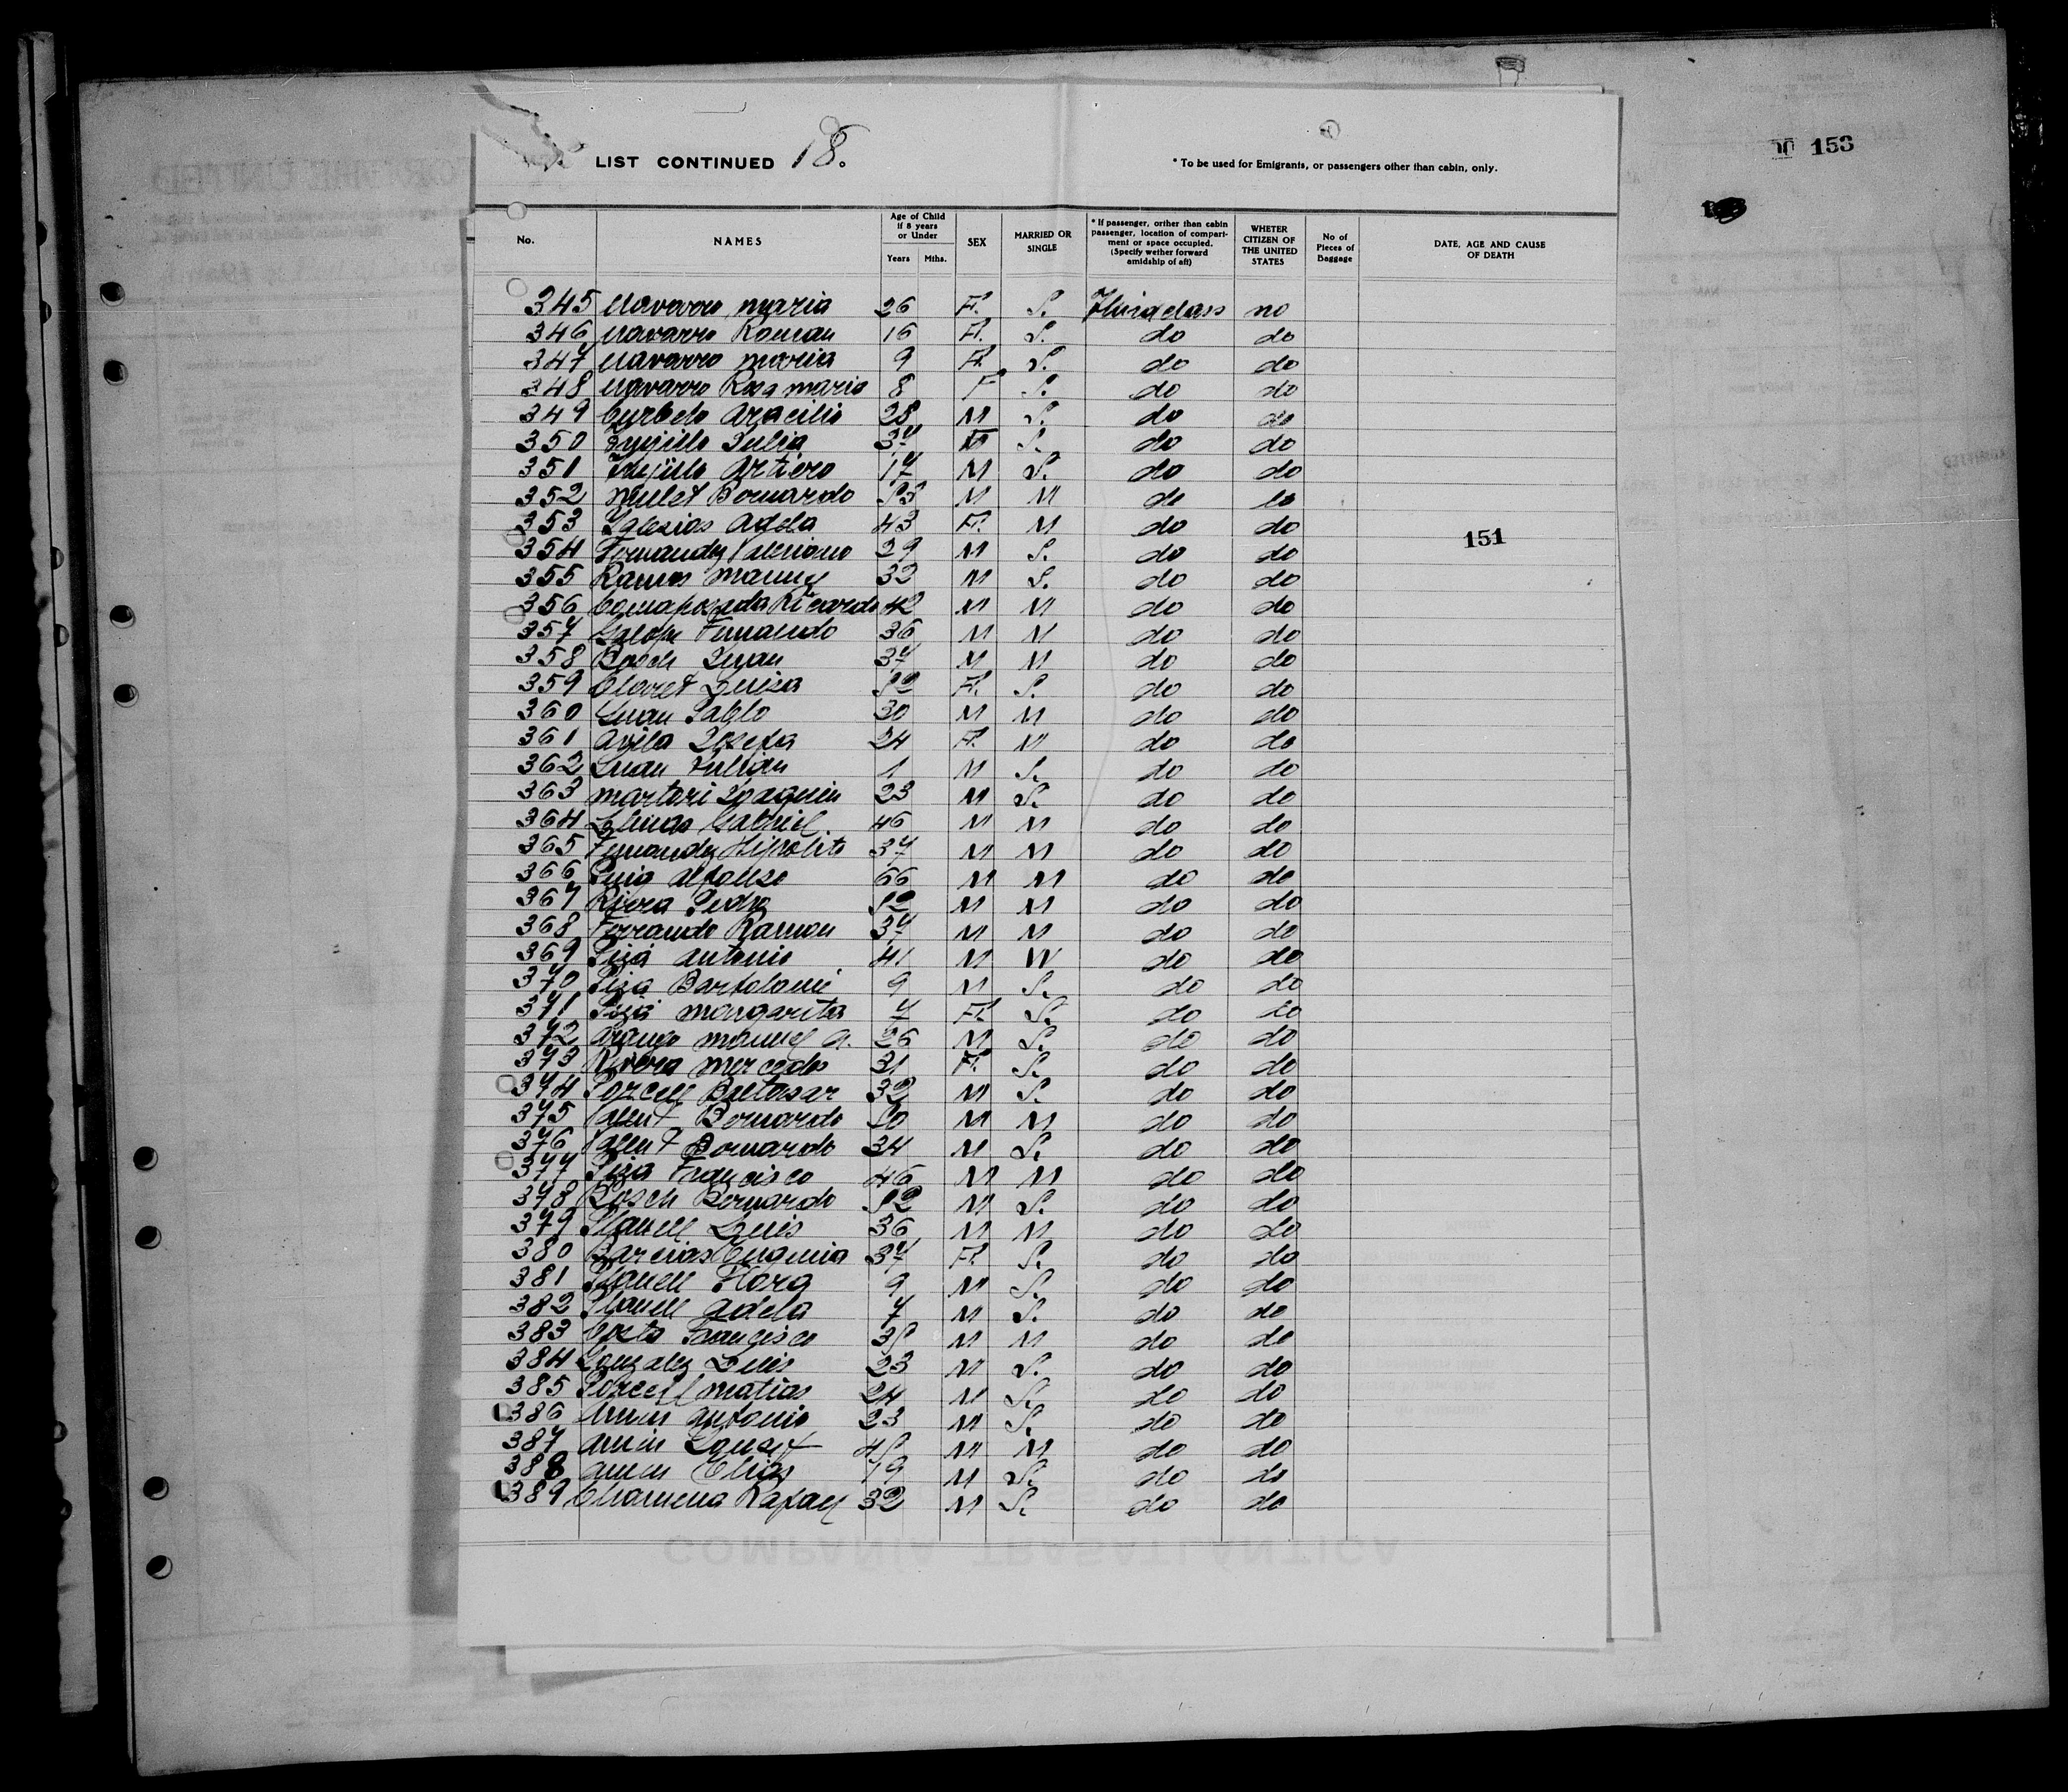 LIST CONTINUED 18.
* To be used for Emigrants, or passengers other than cabin, only.
00 153
No.
NAMES
Age of Child if 8 years or Under
Years Mths.
SEX
MARRIED OR SINGLE
* If passenger, orither than cabin passenger, location of compartiment or space occupied. (Specify wether forward amidship of aft)
WHETER CITIZEN OF THE UNITED STATES
No of Pieces of Baggage
DATE, AGE AND CAUSE OF DEATH
345 Navarro maria 26 F. S. Third class no
346 Navarro Roman 16 F. S. do do
347 Navarro maria 9 F. S. do do
348 Navarro Rosa maria 8 F S. do do
349 Curbelo Aracilio 28 M S. do do
350 Trujillo Julia 37 S. do do
351 Trujillo Artiero 17 M S. do do
352 Mulet Bernardo 53 M M do do
353 Yglesias Adela 43 F. M do do
151
354 Fernandez Valeriano 29 M S. do do
355 Ramos Manuel 32 M S. do do
356 Camaposada Ricardo 42 M M do do
357 Fernando 36 M M do do
358 Bosch Juan 37 M M do do
359 Claret Luisa 52 F. S. do do
360 Juan Pablo 30 M M do do
361 Avila Josefa 24 F. M do do
362 Juan Julian 1 M S. do do
363 Martori Joaquin 23 M S. do do
364 Gabriel 46 M M do do
365 Fernandez Hipolito 37 M M do do
366 Puig Alfonso 66 M M do do
367 Riera Pedro 52 M M do do
368 Ferrando Ramon 37 M M do do
369 Pizá Antonio 41 M W do do
370 Piza Bartolomé 9 M S. do do
371 Pizá Margarita 7 F. S. do do
372 Arango Manuel A. 26 M S. do do
373 Rivera Mercedes 31 F. S. do do
374 Porcell Baltasar 32 M S. do do
375 Valent Bernardo 50 M M do do
376 Valent Bernardo 34 M S. do do
377 Piza Francisco 46 M M do do
378 Bosch Bernardo 52 M S. do do
379 Planell Luis 36 M M do do
380 Barcias Eugenia 37 F. S. do do
381 Planell Flora 9 M S. do do
382 Planell Adela 7 M S. do do
383 Costa Francisco 35 M M do do
384 Gonzalez Luis 23 M S. do do
385 Porcell Matias 24 M S. do do
386 Antonio 23 M S. do do
387 Amin 45 M M do do
388 Amin Elias 19 M S. do do
389 Rafael 32 M S. do do
COMPAÑIA TRASATLANTICA